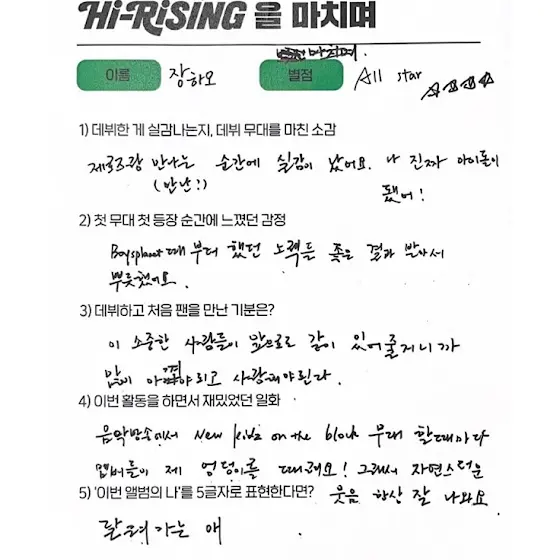 Hi-RiSiNG 을 마치며
마치며.
이름 장하오 별점 All star ☆☆☆☆
1) 데뷔한 게 실감나는지, 데뷔 무대를 마친 소감
제로즈랑 만나는 순간에 실감이 났어요. 나 진짜 아이돌이
(만난?) 됐어!
2) 첫 무대 첫 등장 순간에 느꼈던 감정
Boysplanet 때부터 했던 노력들 좋은 결과 받아서
뿌듯했어요.
3) 데뷔하고 처음 팬을 만난 기분은?
이 소중한 사람들이 앞으로 같이 있어줄거니까
많이 아껴야되고 사랑해야된다.
4) 이번 활동을 하면서 재밌었던 일화
음악방송에서 New kidz on the block 무대 할때마다
멤버들이 제 엉덩이를 때려요! 그래서 자연스러운
5) '이번 앨범의 나'를 5글자로 표현한다면? 웃음 항상 잘 나와요
달려가는 애